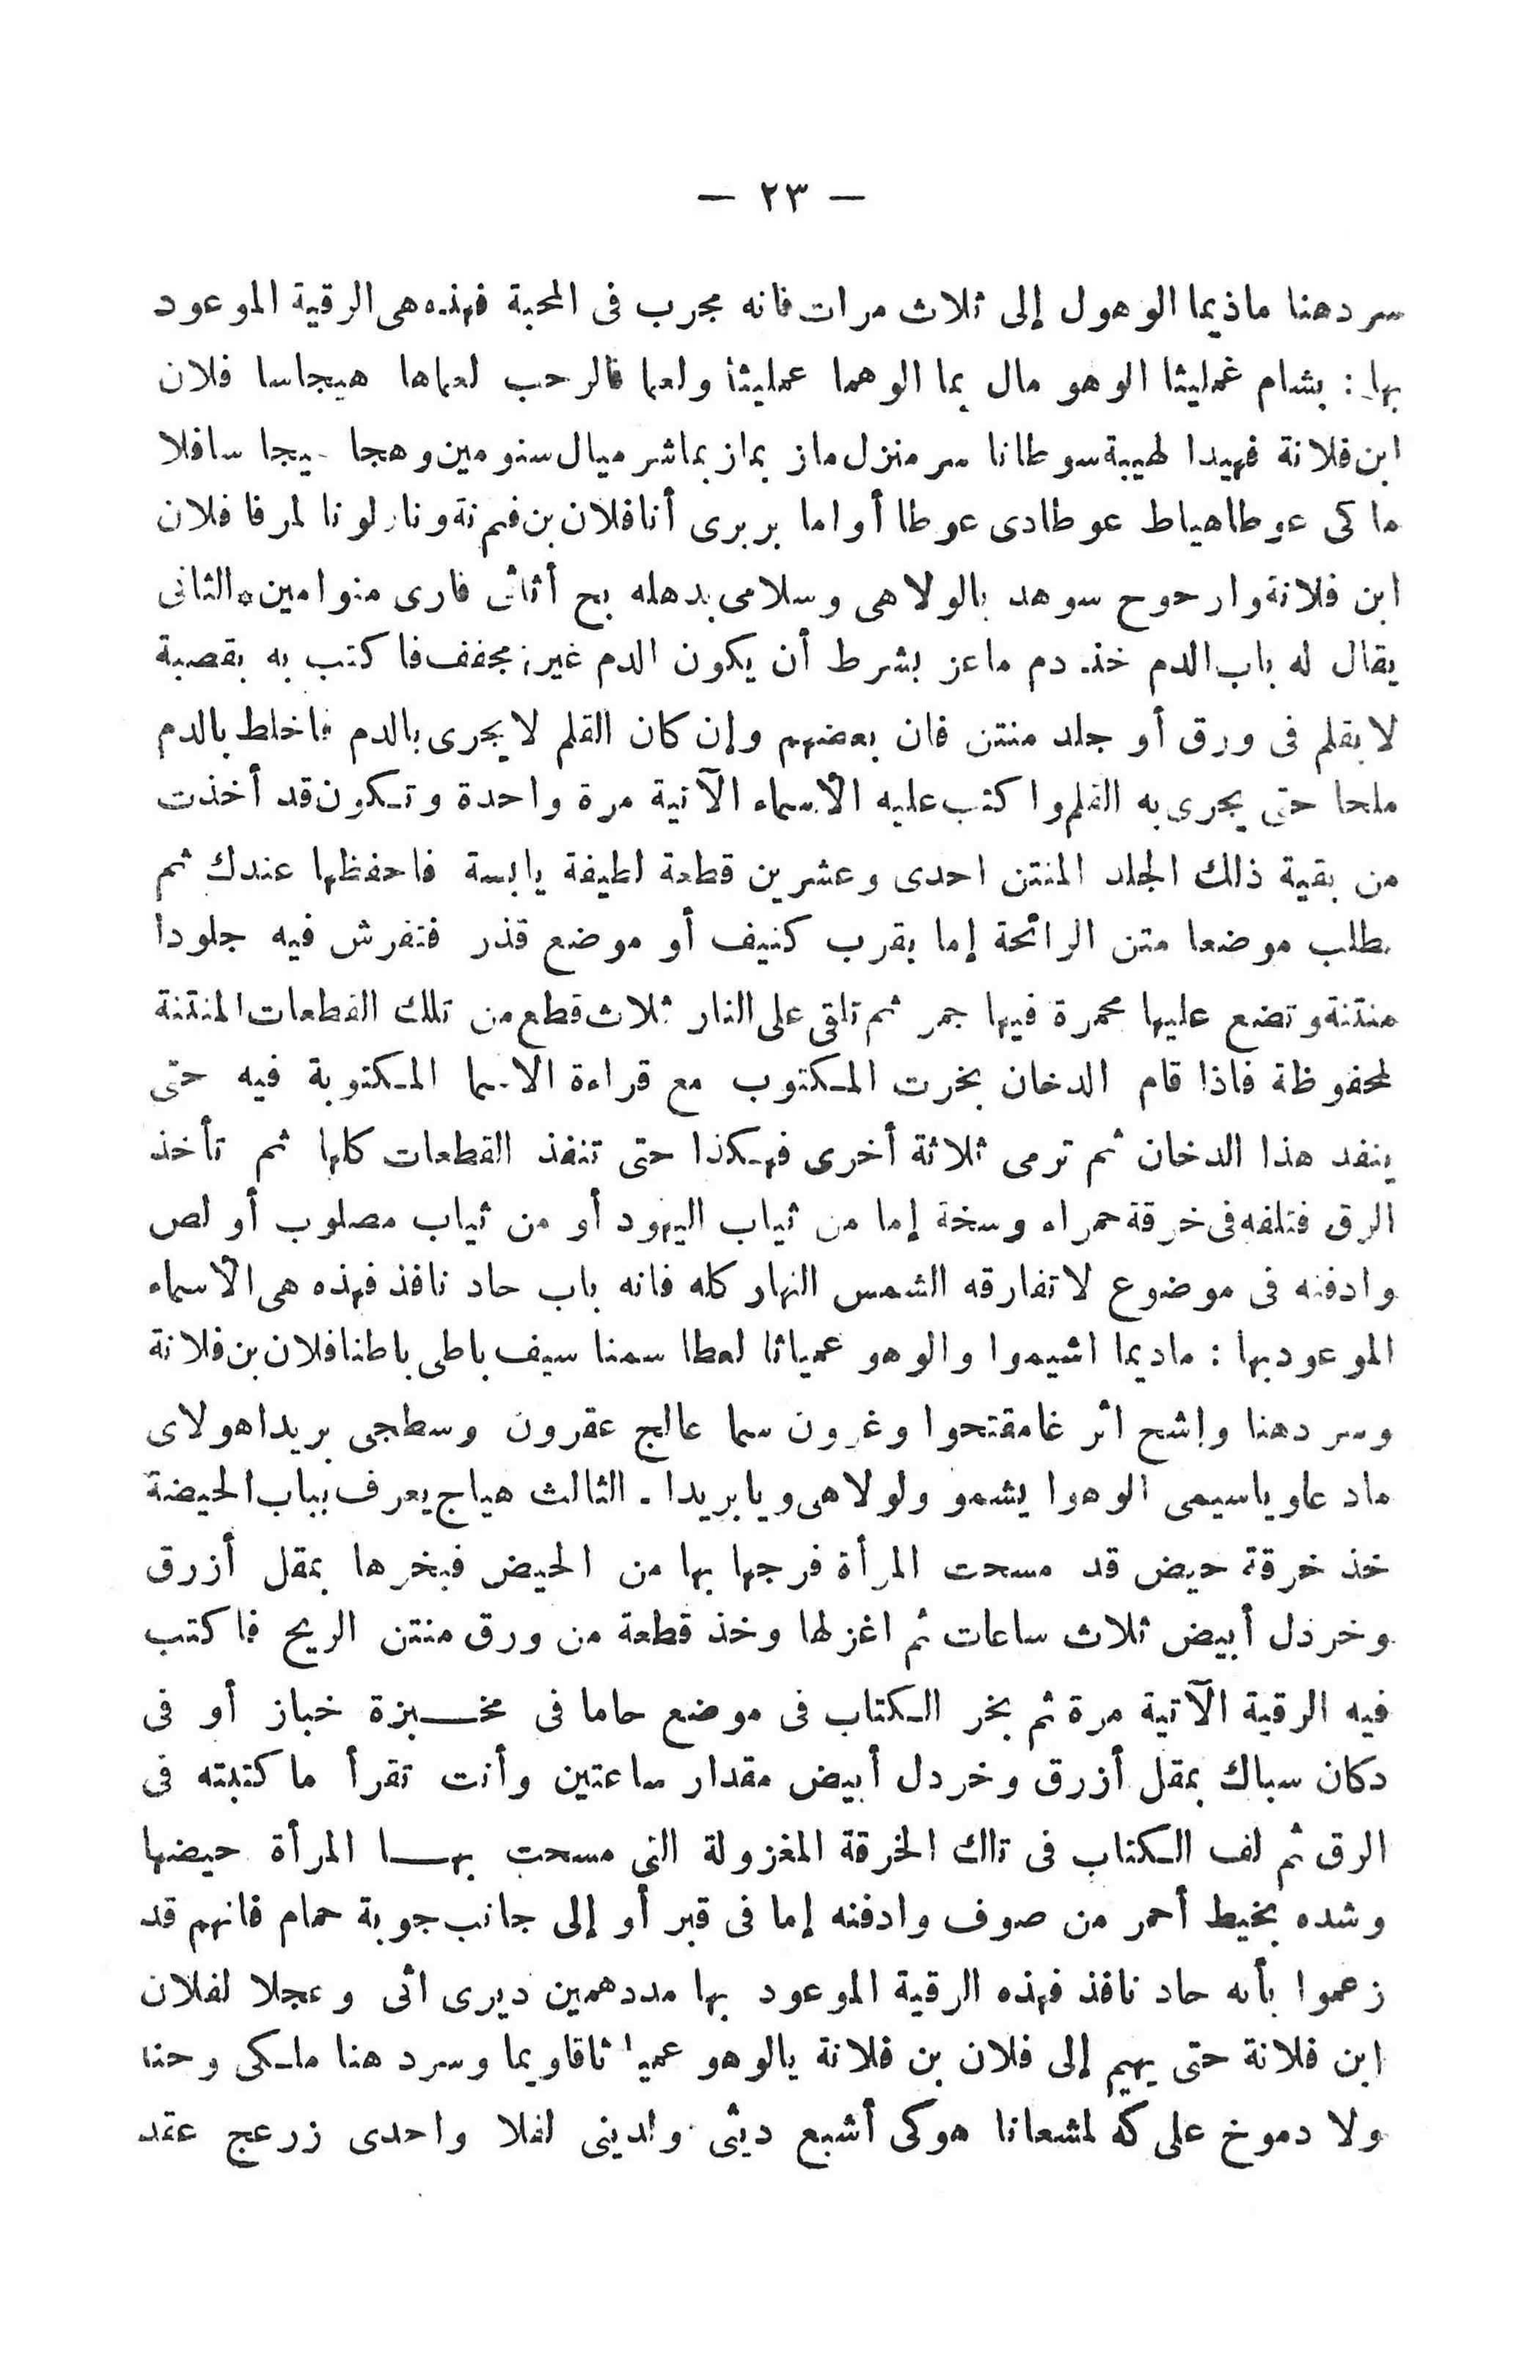 — ٢٣ —
سردهنا ماذيما الوهول إلى ثلاث مرات فانه مجرب فى المحبة فهذه هى الرقية الموعود
بها : بشام غمليثا الوهو مال بما الوهما عمليثا ولعما فالرحب لعماها هيجاسا فلان
ابن فلانة فهيدا لهيبة سوطانا سر منزل ماز بماز بماشر ميال سنومين وهجا يجا سافلا
ماكى عوطاهياط عوطادى عوطا أواما بربرى أنا فلان بن ونار لونا لمرفا فلان
ابن فلانة وارحوح سوهد بالولاهى وسلامى بدهله بح أثاثى فارى منوامين * الثانى
يقال له باب الدم خذ دم ماعز بشرط أن يكون الدم غير مجفف فاكتب به بقصبة
لا بقلم فى ورق أو جلد منتن فان بعضهم وإن كان القلم لا يجرى بالدم فاخلط بالدم
ملحا حتى يجرى به القلم واكتب عليه الأسماء الآتية مرة واحدة وتكون قد أخذت
من بقية ذلك الجلد المنتن احدى وعشرين قطعة لطيفة يابسة فاحفظها عندك ثم
طلب موضعا متن الرائحة إما بقرب كنيف أو موضع قذر فتفرش فيه جلودا
منتنة وتضع عليها محمرة فيها جمر ثم تلقى على النار ثلاث قطع من تلك القطعات المنتنة
لمحفوظة فاذا قام الدخان بخرت المكتوب مع قراءة الاسما المكتوبة فيه حتى
ينفد هذا الدخان ثم ترمى ثلاثة أخرى فهكذا حتى تنفذ القطعات كلها ثم تأخذ
الرق فتلفه فى خرقة حمراء وسخة إما من ثياب اليهود أو من ثياب مصلوب أو لص
وادفنه فى موضوع لا تفارقه الشمس النهار كله فانه باب حاد نافذ فهذه هى الأسماء
الموعود بها : ماديما اشيموا والوهو عمياثا لعطا سمنا سيف باطى باطنا فلان بن فلانة
وسردهنا وإشح اثر غامقتحوا وغرون سما عالج عقرون وسطجى بريدا هولاى
ماد عاوياسيمى الوهوا يشمو ولولاهى ويا بريدا . الثالث هياج يعرف بباب الحيضة
خذ خرقة حيض قد مسحت المرأة فرجها بها من الحيض فبخرها بمقل أزرق
وخردل أبيض ثلاث ساعات ثم اغزلها وخذ قطعة من ورق منتن الريح فاكتب
فيه الرقية الآتية مرة ثم بخر الكتاب فى موضع حاما فى مخبزة خباز أو فى
دكان سباك بمقل أزرق وخردل أبيض مقدار ساعتين وأنت تقرأ ما كتبته فى
الرق ثم لف الكتاب فى تلك الخرقة المغزولة التى مسحت بها المرأة حيضها
وشده بخيط أحمر من صوف وادفنه إما فى قبر أو إلى جانب جوبة حمام فانهم قد
زعموا بأنه حاد نافذ فهذه الرقية الموعود بها مددهمين ديرى اثى وعجلا لفلان
ابن فلانة حتى يهيم إلى فلان بن فلانة يالوهو عميا ثاقاويما وسرد هنا ملكى وحنا
ولا دموخ على كه لمشعانا هوكى أشبع ديثى ولدينى لفلا واحدى زرعج عقد